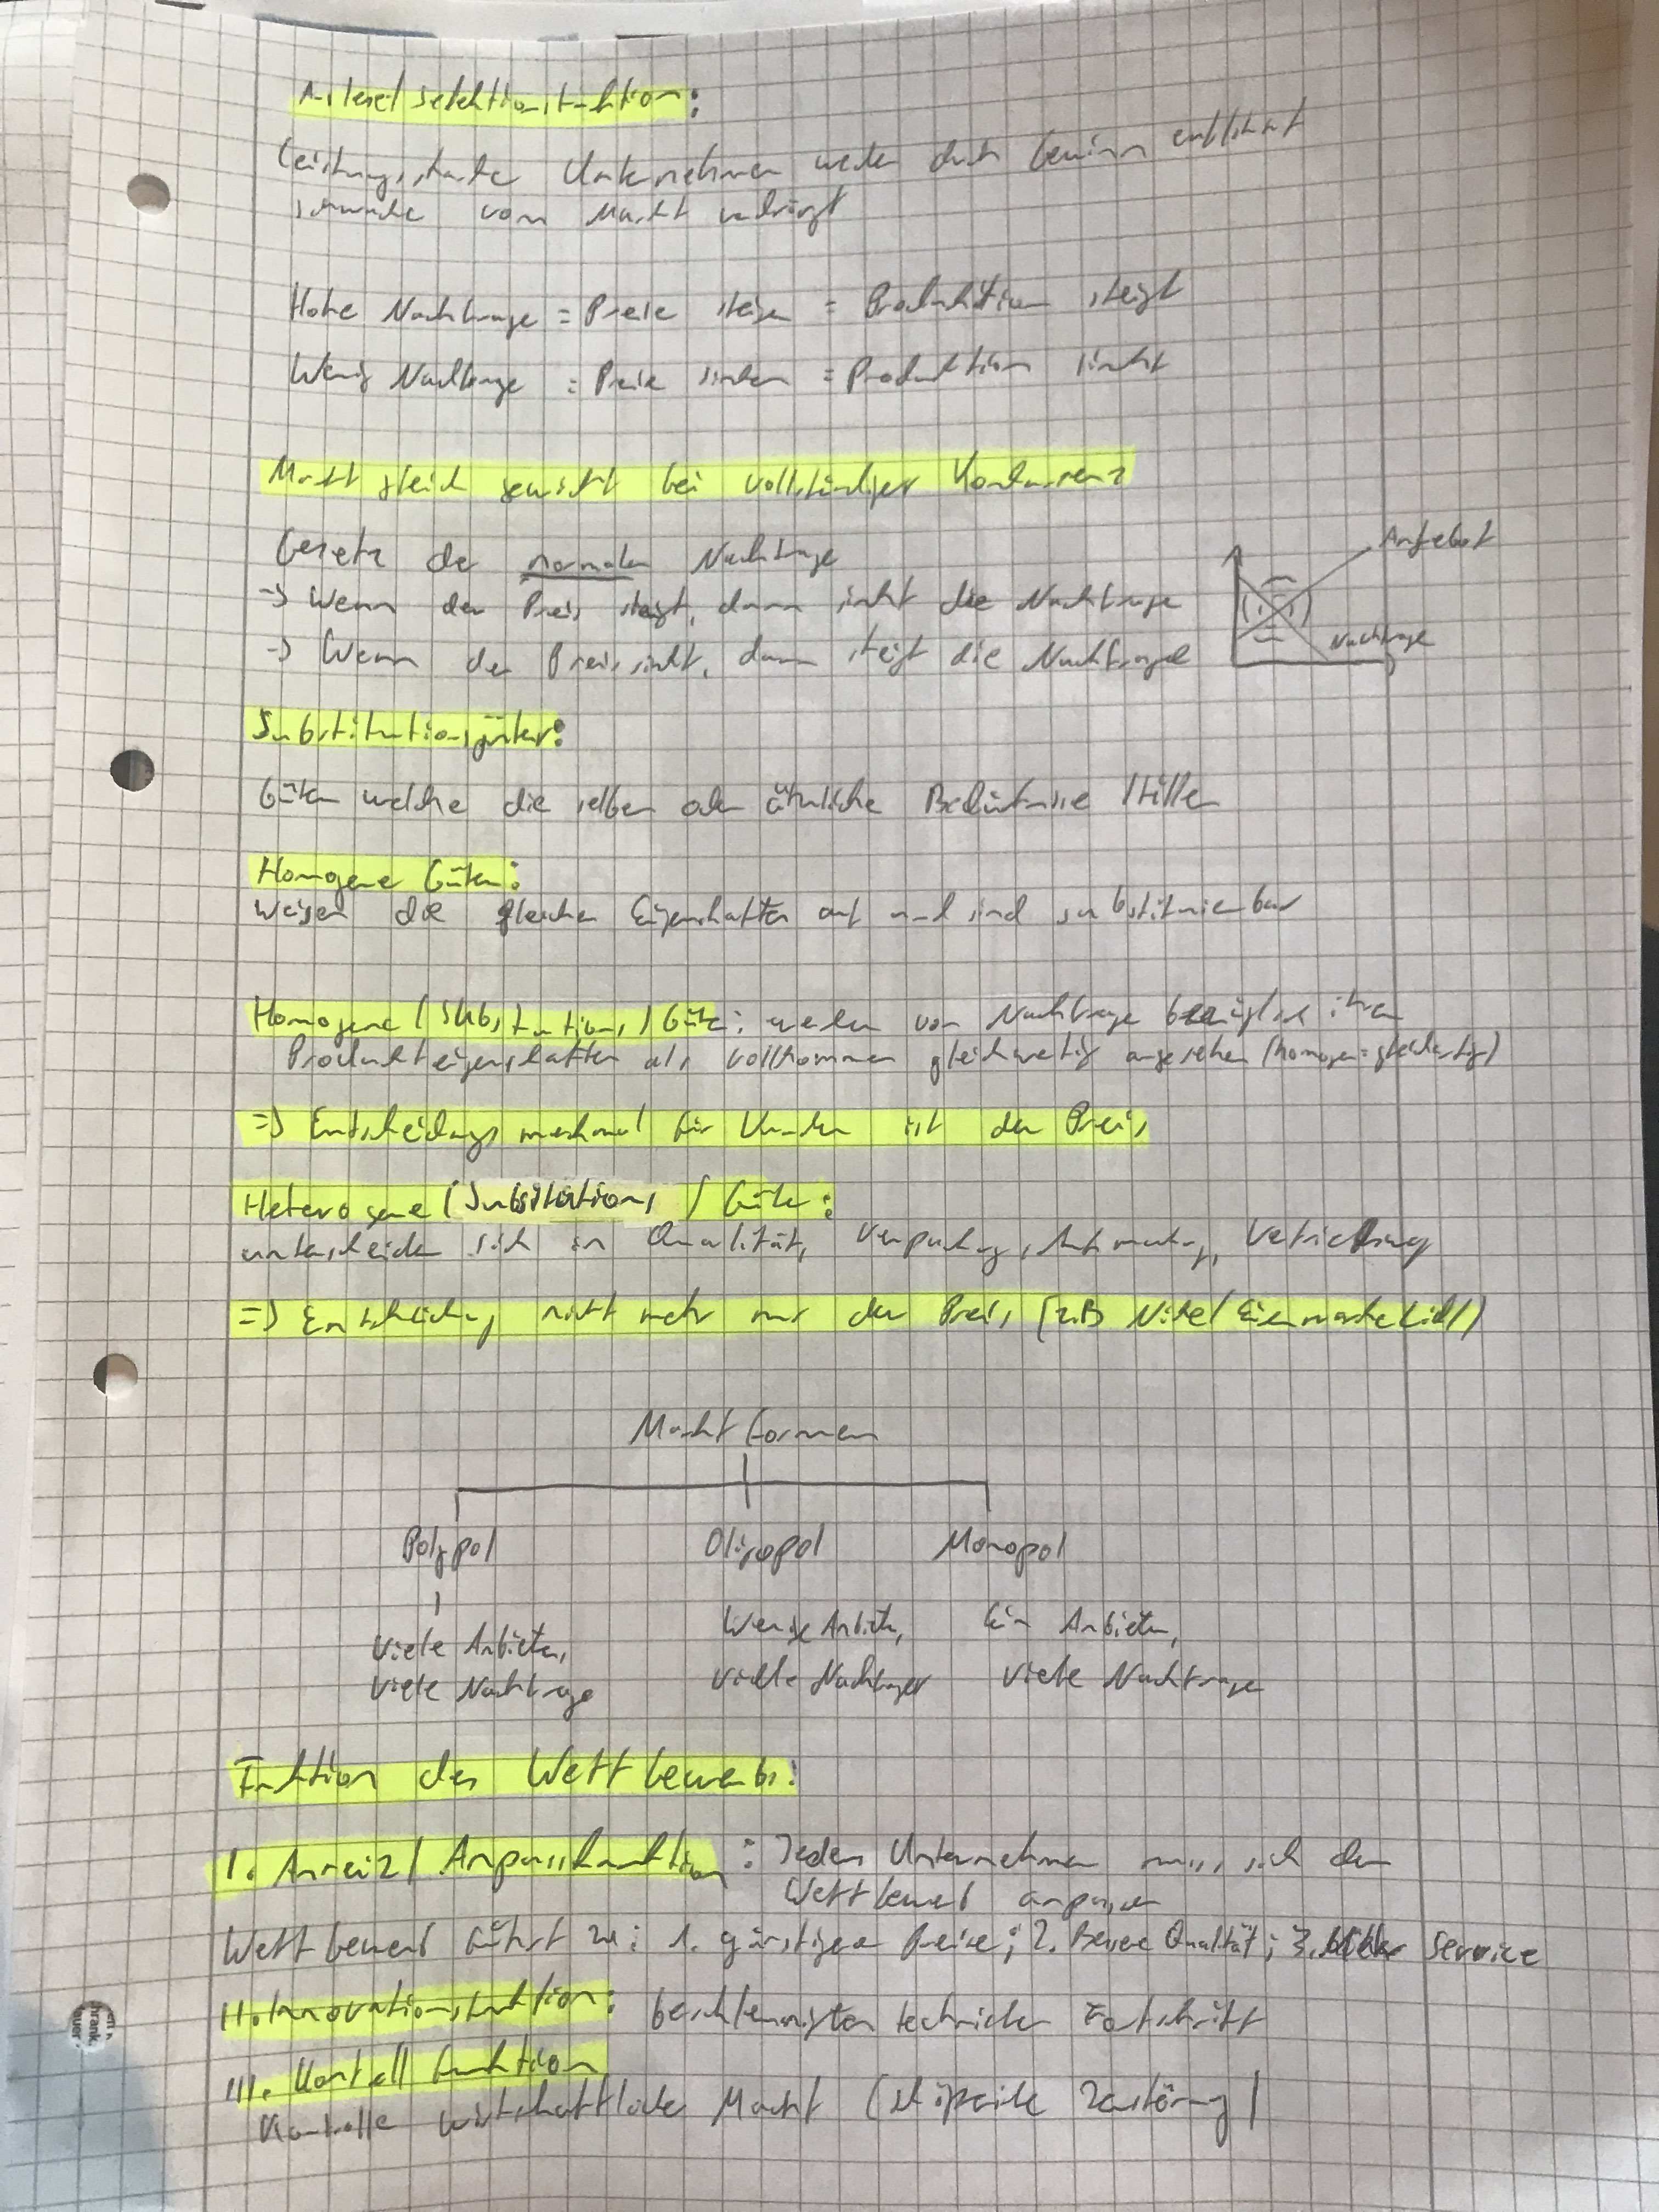 Auslese/Selektionsfunktion:
Leistungsstarke Unternehmen werden durch Gewinn entlohnt
schwache vom Markt verdrängt
Hohe Nachfrage = Preise steigen = Produktion steigt
Wenig Nachfrage = Preise sinken = Produktion sinkt
Marktgleichgewicht bei vollständiger Konkurrenz
Gesetz der normalen Nachfrage
-> Wenn der Preis steigt, dann sinkt die Nachfrage
-> Wenn der Preis sinkt, dann steigt die Nachfrage
Angebot
Nachfrage
Substitutionsgüter:
Güter welche die selben oder ähnliche Bedürfnisse stillen
Homogene Güter:
weisen die gleichen Eigenschaften auf und sind substituierbar
Homogene (Substitutions) Güter: werden von Nachfrage bezüglich ihren
Produkteigenschaften als vollkommen gleichwertig angesehen (homogen=gleichartig)
=> Entscheidungsmerkmal für Kunden ist der Preis
Heterogene (Substitutions) Güter:
unterscheiden sich in Qualität, Verpackung, Aufmachung,
=> Entscheidung nicht mehr nur der Preis (z.B
Marktformen
Polypol Oligopol Monopol
viele Anbieter, viele Nachfrage
Wenige Anbieter, viele Nachfrager
Ein Anbieter, viele Nachfrage
Funktion des Wettbewerbs:
I. Anreiz/Anpassfunktion: Jedes Unternehmen muss sich dem
Wettbewerb anpassen
Wettbewerb führt zu: 1. günstigere Preise; 2. Bessere Qualität; 3. Service
II. Innovationsfunktion: beschleunigten technischen Fortschritt
III. Kontrollfunktion
Kontrolle wirtschaftlicher Macht (schöpferische Zerstörung)